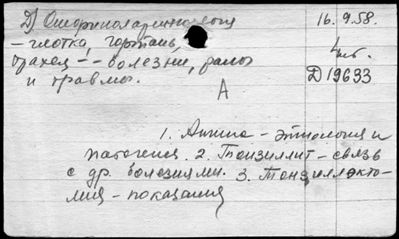 Д) Оториноларингология
16.9.58.
– глотка, гортань,
трахея – – болезни, раны
и травмы.
Д 19633
А
1. Ангина – этиология и
патогенез. 2. Тонзиллит – связь
с др. болезнями. 3. Тонзиллэкто-
мия – показания